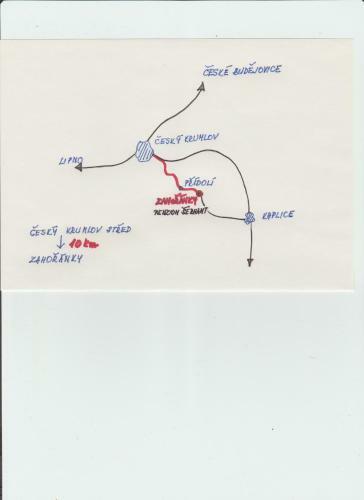 ČESKÉ BUDĚJOVICE
ČESKÝ KRUMLOV
LIPNO
PŘÍDOLÍ
ZAHOŘÁNKY
PENZION ŠERHANT
KAPLICE
ČESKÝ KRUMLOV STŘED
10 km
ZAHOŘÁNKY